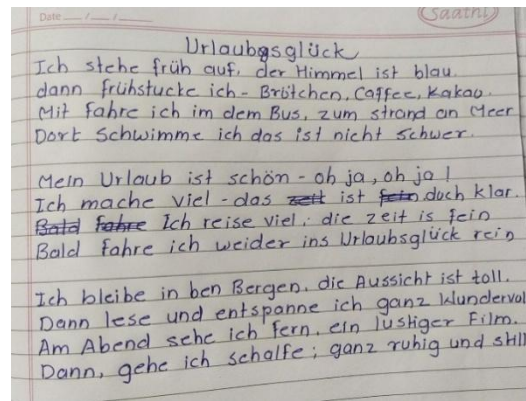 Date
Saathi
Urlaubsglück
Ich stehe früh auf, der Himmel ist blau.
dann frühstucke ich - Brötchen, Caffee, Kakao.
Mit fahre ich im dem Bus, zum strand an Meer
Dort schwimme ich das ist nicht schwer.
Mein Urlaub ist schön - oh ja, oh ja!
Ich mache viel - das zeit ist fein doch klar.
Bald fahre Ich reise viel; die zeit is fein
Bald fahre ich weider ins Urlaubsglück rein
Ich bleibe in ben Bergen, die Aussicht ist toll.
Dann lese und entspanne ich ganz wundervol
Am Abend sehe ich fern, ein lustiger Film.
Dann, gehe ich schalfe; ganz ruhig und still